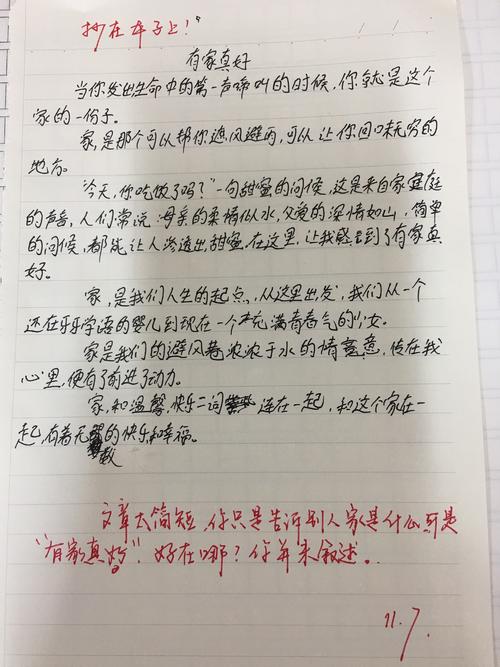 抄在本子上！
有家真好
当你发出生命中的第一声啼叫的时候，你就是这个
家的一份子。
家，是那个可以帮你遮风避雨，可以让你回味无穷的
地方。
“今天，你吃饭了吗？”一句甜蜜的问候，这是来自家庭
的声音，人们常说 母亲的柔情似水，父爱的深情如山，简单
的问候，都能让人渗透出甜蜜，在这里，让我感受到了有家真
好。
家，是我们人生的起点，从这里出发，我们从一个
还在牙牙学语的婴儿到现在一个充满青春气的少女。
家是我们的避风港 浓浓于水的情意，传在我
心里，便有了前进了动力。
家，和温馨，快乐二词 连在一起，和这个家在一
起，有着无数的快乐和幸福。
文章太简短，你只是告诉别人家是什么，可是
“有家真好”，好在哪？你并未叙述。
11.7